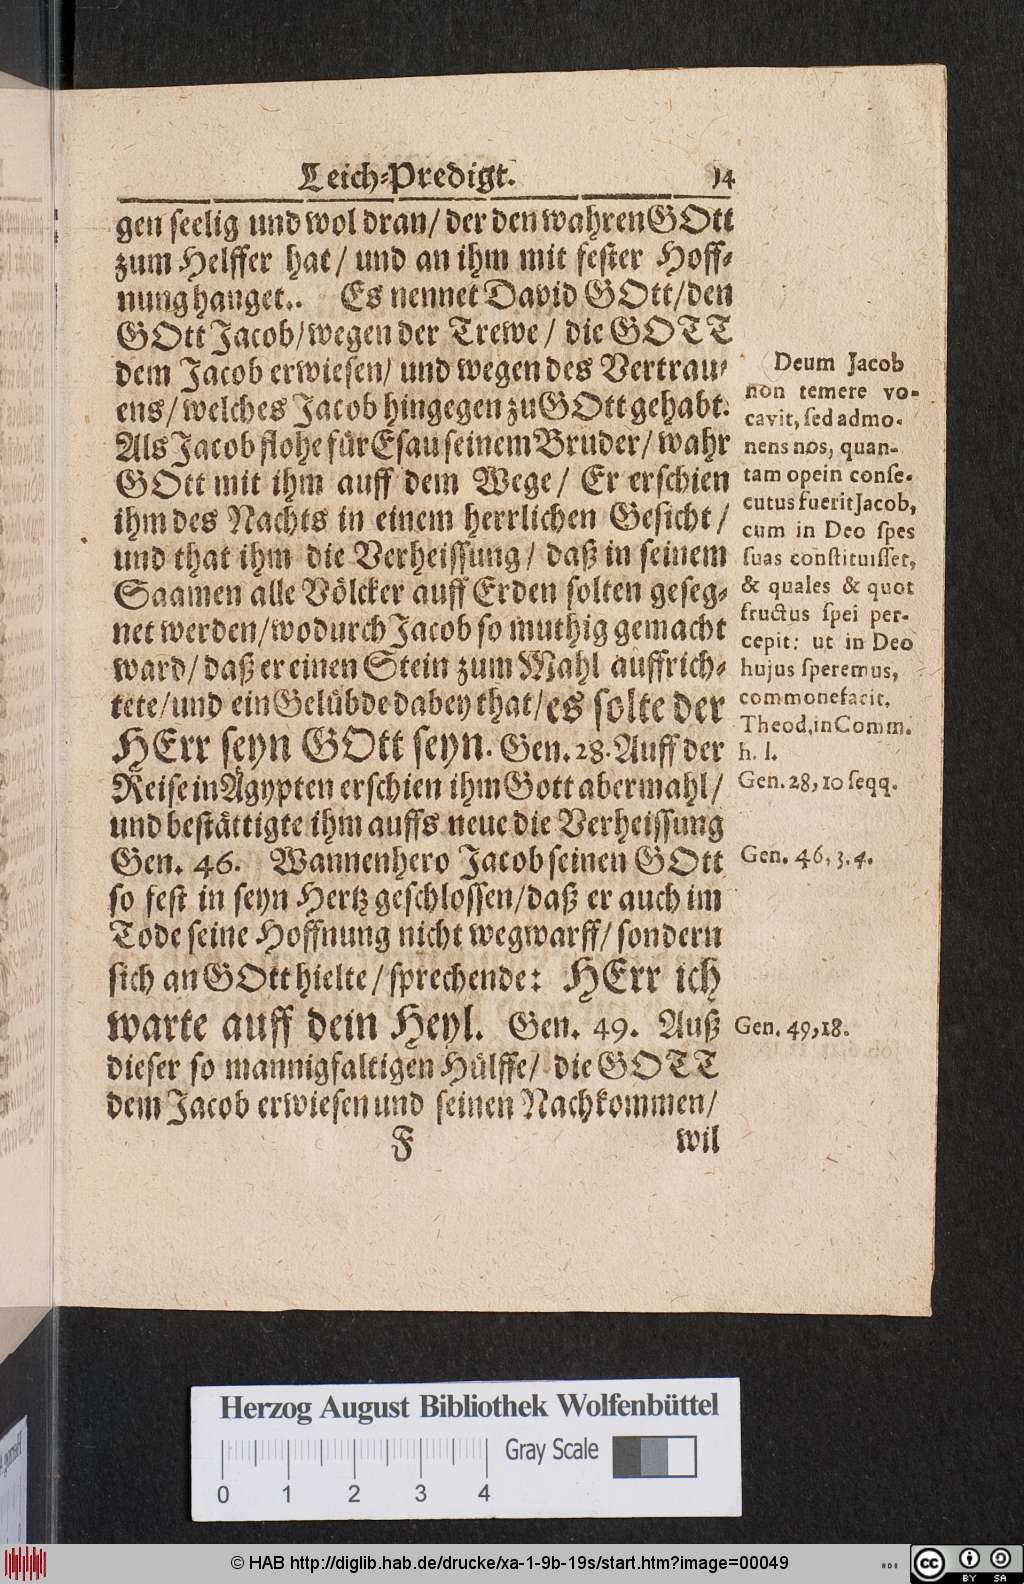 Leich-Predigt. 14
gen seelig und wol dran/ der den wahren GOtt
zum Helffer hat/ und an ihm mit fester Hoff-
nung hanget.. Es nennet David GOtt/ den
GOtt Jacob/ wegen der Trewe/ die GOTT
dem Jacob erwiesen/ und wegen des Vertrau-
ens/ welches Jacob hingegen zu GOtt gehabt.
Als Jacob flohe für Esau seinem Bruder/ wahr
GOtt mit ihm auff dem Wege/ Er erschien
ihm des Nachts in einem herrlichen Gesicht/
und that ihm die Verheissung/ daß in seinem
Saamen alle Völcker auff Erden solten geseg-
net werden/ wodurch Jacob so muthig gemacht
ward/ daß er einen Stein zum Mahl auffrich-
tete/ und ein Gelübde dabey that/ es solte der
HErr seyn GOtt seyn. Gen. 28. Auff der
Reise in Ägypten erschien ihm Gott abermahl/
und bestättigte ihm auffs neue die Verheissung
Gen. 46. Wannenhero Jacob seinen GOtt
so fest in seyn Hertz geschlossen/ daß er auch im
Tode seine Hoffnung nicht wegwarff/ sondern
sich an GOtt hielte/ sprechende: HErr ich
warte auff dein Heyl. Gen. 49. Auß
dieser so mannigfaltigen Hülffe/ die GOTT
dem Jacob erwiesen und seinen Nachkommen/
F wil
Deum Jacob
non temere vo-
cavit, sed admo-
nens nos, quan-
tam opem conse-
cutus fuerit Jacob,
cum in Deo spes
suas constituisset,
& quales & quot
fructus spei per-
cepit: ut in Deo
hujus speremus,
commonefacit,
Theod. in Comm.
h. l.
Gen. 28, 10 seqq.
Gen. 46, 3. 4.
Gen. 49, 18.
Herzog August Bibliothek Wolfenbüttel
Gray Scale
0 1 2 3 4
© HAB http://diglib.hab.de/drucke/xa-1-9b-19s/start.htm?image=00049
cc BY SA